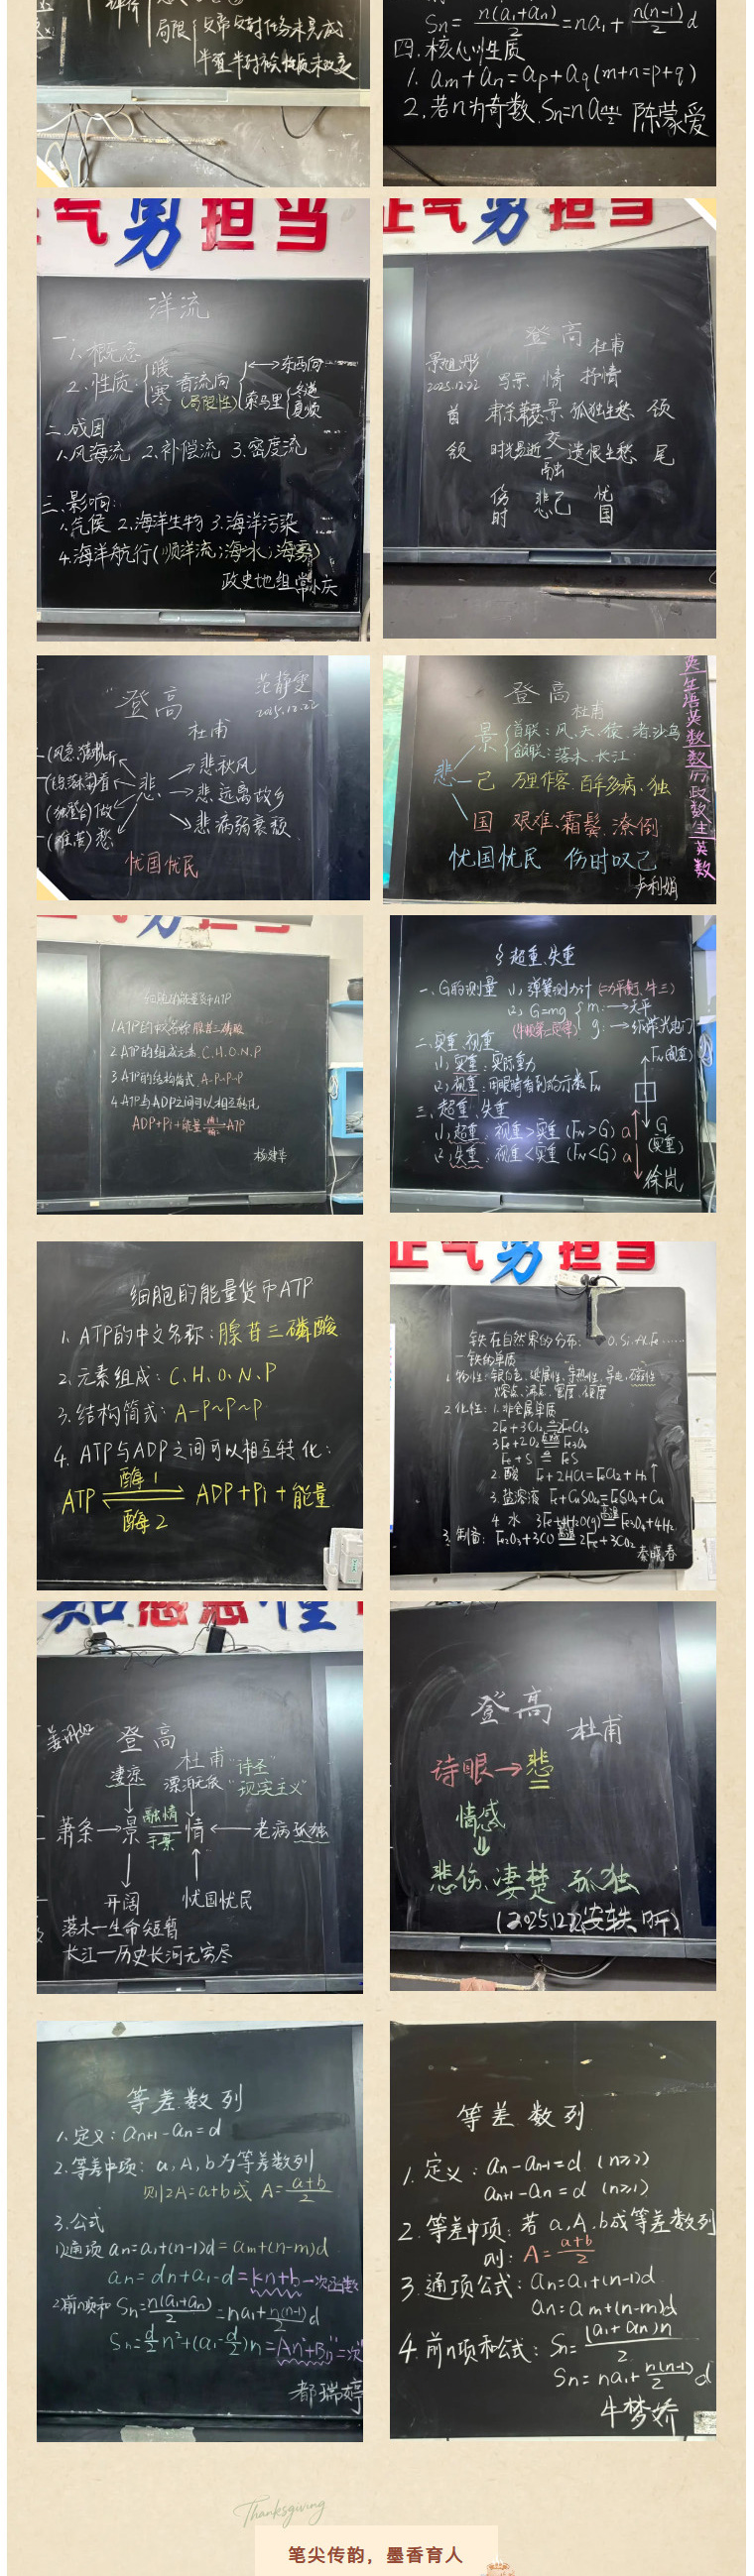 局限
反帝反封任务未完成
半殖半封社会性质未改变
Sn= n(a₁+an)/2 =na₁+ n(n-1)/2 d
四.核心性质
1. am+an=ap+aq(m+n=p+q)
2.若n为奇数,Sn=n a n+1/2 陈蒙爱
正气 男 担当
洋流
一、1.概念
2.性质:
暖
寒
看流向
(局限性)
东西向
索马里
冬逆
夏顺
二.成因
1.风海流 2.补偿流 3.密度流
三.影响:
1.气候 2.海洋生物 3.海洋污染
4.海洋航行(顺洋流;海冰;海雾)
政史地组
正气 男 担当
登高
杜甫
2025.12.22
写景 情 抒情
首 景 孤独生愁 颈
颔 时光易逝 交融 遗恨生愁 尾
伤时 悲己 忧国
"登高
范静雯
2025.12.22
杜甫
悲
悲秋风
悲远离故乡
悲病弱衰颓
忧国忧民
登高
杜甫
悲
景
首联:风、天、猿、渚、沙、鸟
颔联:落木、长江
己 万里作客 百年多病、独
国 艰难、霜鬓、潦倒
忧国忧民 伤时叹己
步利娟
细胞的能量货币ATP
1.ATP的中文名称 腺苷三磷酸
2.ATP的组成元素 C.H.O.N.P
3.ATP的结构简式 A-P~P~P
4.ATP与ADP之间可以相互转化
ADP+Pi+能量 酶1 酶2 ATP
杨建华
§ 超重、失重
一、G的测量 (1) 弹簧测力计 (=力平衡、牛三)
(2) G=mg
m: →天平
(牛顿第二定律)
g: →纸带光电门
二、实重、视重
FN(视重)
(1)实重:实际重力
(2)视重:用眼睛看到的示数FN
三、超重、失重
G
(实重)
(1)超重:视重>实重 (FN>G) a
(2)失重:视重<实重 (FN<G) a
徐岚
细胞的能量货币ATP
1. ATP的中文名称:腺苷三磷酸
2.元素组成:C、H、O、N、P
3.结构简式:A-P~P~P
4. ATP与ADP之间可以相互转化:
ATP 酶1 酶2 ADP+Pi+能量
正气 男 担当
铁在自然界的分布: O.Si.Al.Fe……
一 铁的单质
1.物性:银白色、延展性、导热性、导电、磁性
熔点、沸点、密度、硬度
2 化性:1.非金属单质
2Fe+3Cl₂ = 2FeCl₃
3Fe+2O₂ = Fe₃O₄
Fe+S = FeS
2.酸 Fe+2HCl=FeCl₂+H₂↑
3.盐溶液 Fe+CuSO₄=FeSO₄+Cu
4 水 3Fe+4H₂O(g) 高温 Fe₃O₄+4H₂
3.制备: Fe₂O₃+3CO 高温 2Fe+3CO₂
秦晓春
知 感恩 懂
登高
杜甫 "诗圣"
"现实主义"
凄凉
漂泊无依
萧条→景 融情于景 情←老病孤独
开阔 忧国忧民
落木—生命短暂
长江—历史长河无穷尽
"登高
杜甫
诗眼→悲
情感
悲伤、凄楚、孤独
(2025.12.22 安轶昕)
等差数列
1.定义:an+1-an=d
2.等差中项: a,A,b为等差数列
则2A=a+b或 A= a+b/2
3.公式
1)通项 an=a₁+(n-1)d=am+(n-m)d
an=dn+a₁-d=kn+b 一次函数
2)前n项和 Sn= n(a₁+an)/2 =na₁+ n(n-1)/2 d
Sn= d/2 n²+(a₁- d/2)n=An²+Bn 二次
都瑞婷
等差数列
1.定义:an-an-1=d (n≥2)
an+1-an=d (n≥1)
2.等差中项:若a,A,b成等差数列
则:A= a+b/2
3.通项公式:an=a₁+(n-1)d
an=am+(n-m)d
4.前n项和公式:Sn= (a₁+an)n/2
Sn=na₁+ n(n-1)/2 d
牛梦娇
Thanksgiving
笔尖传韵，墨香育人